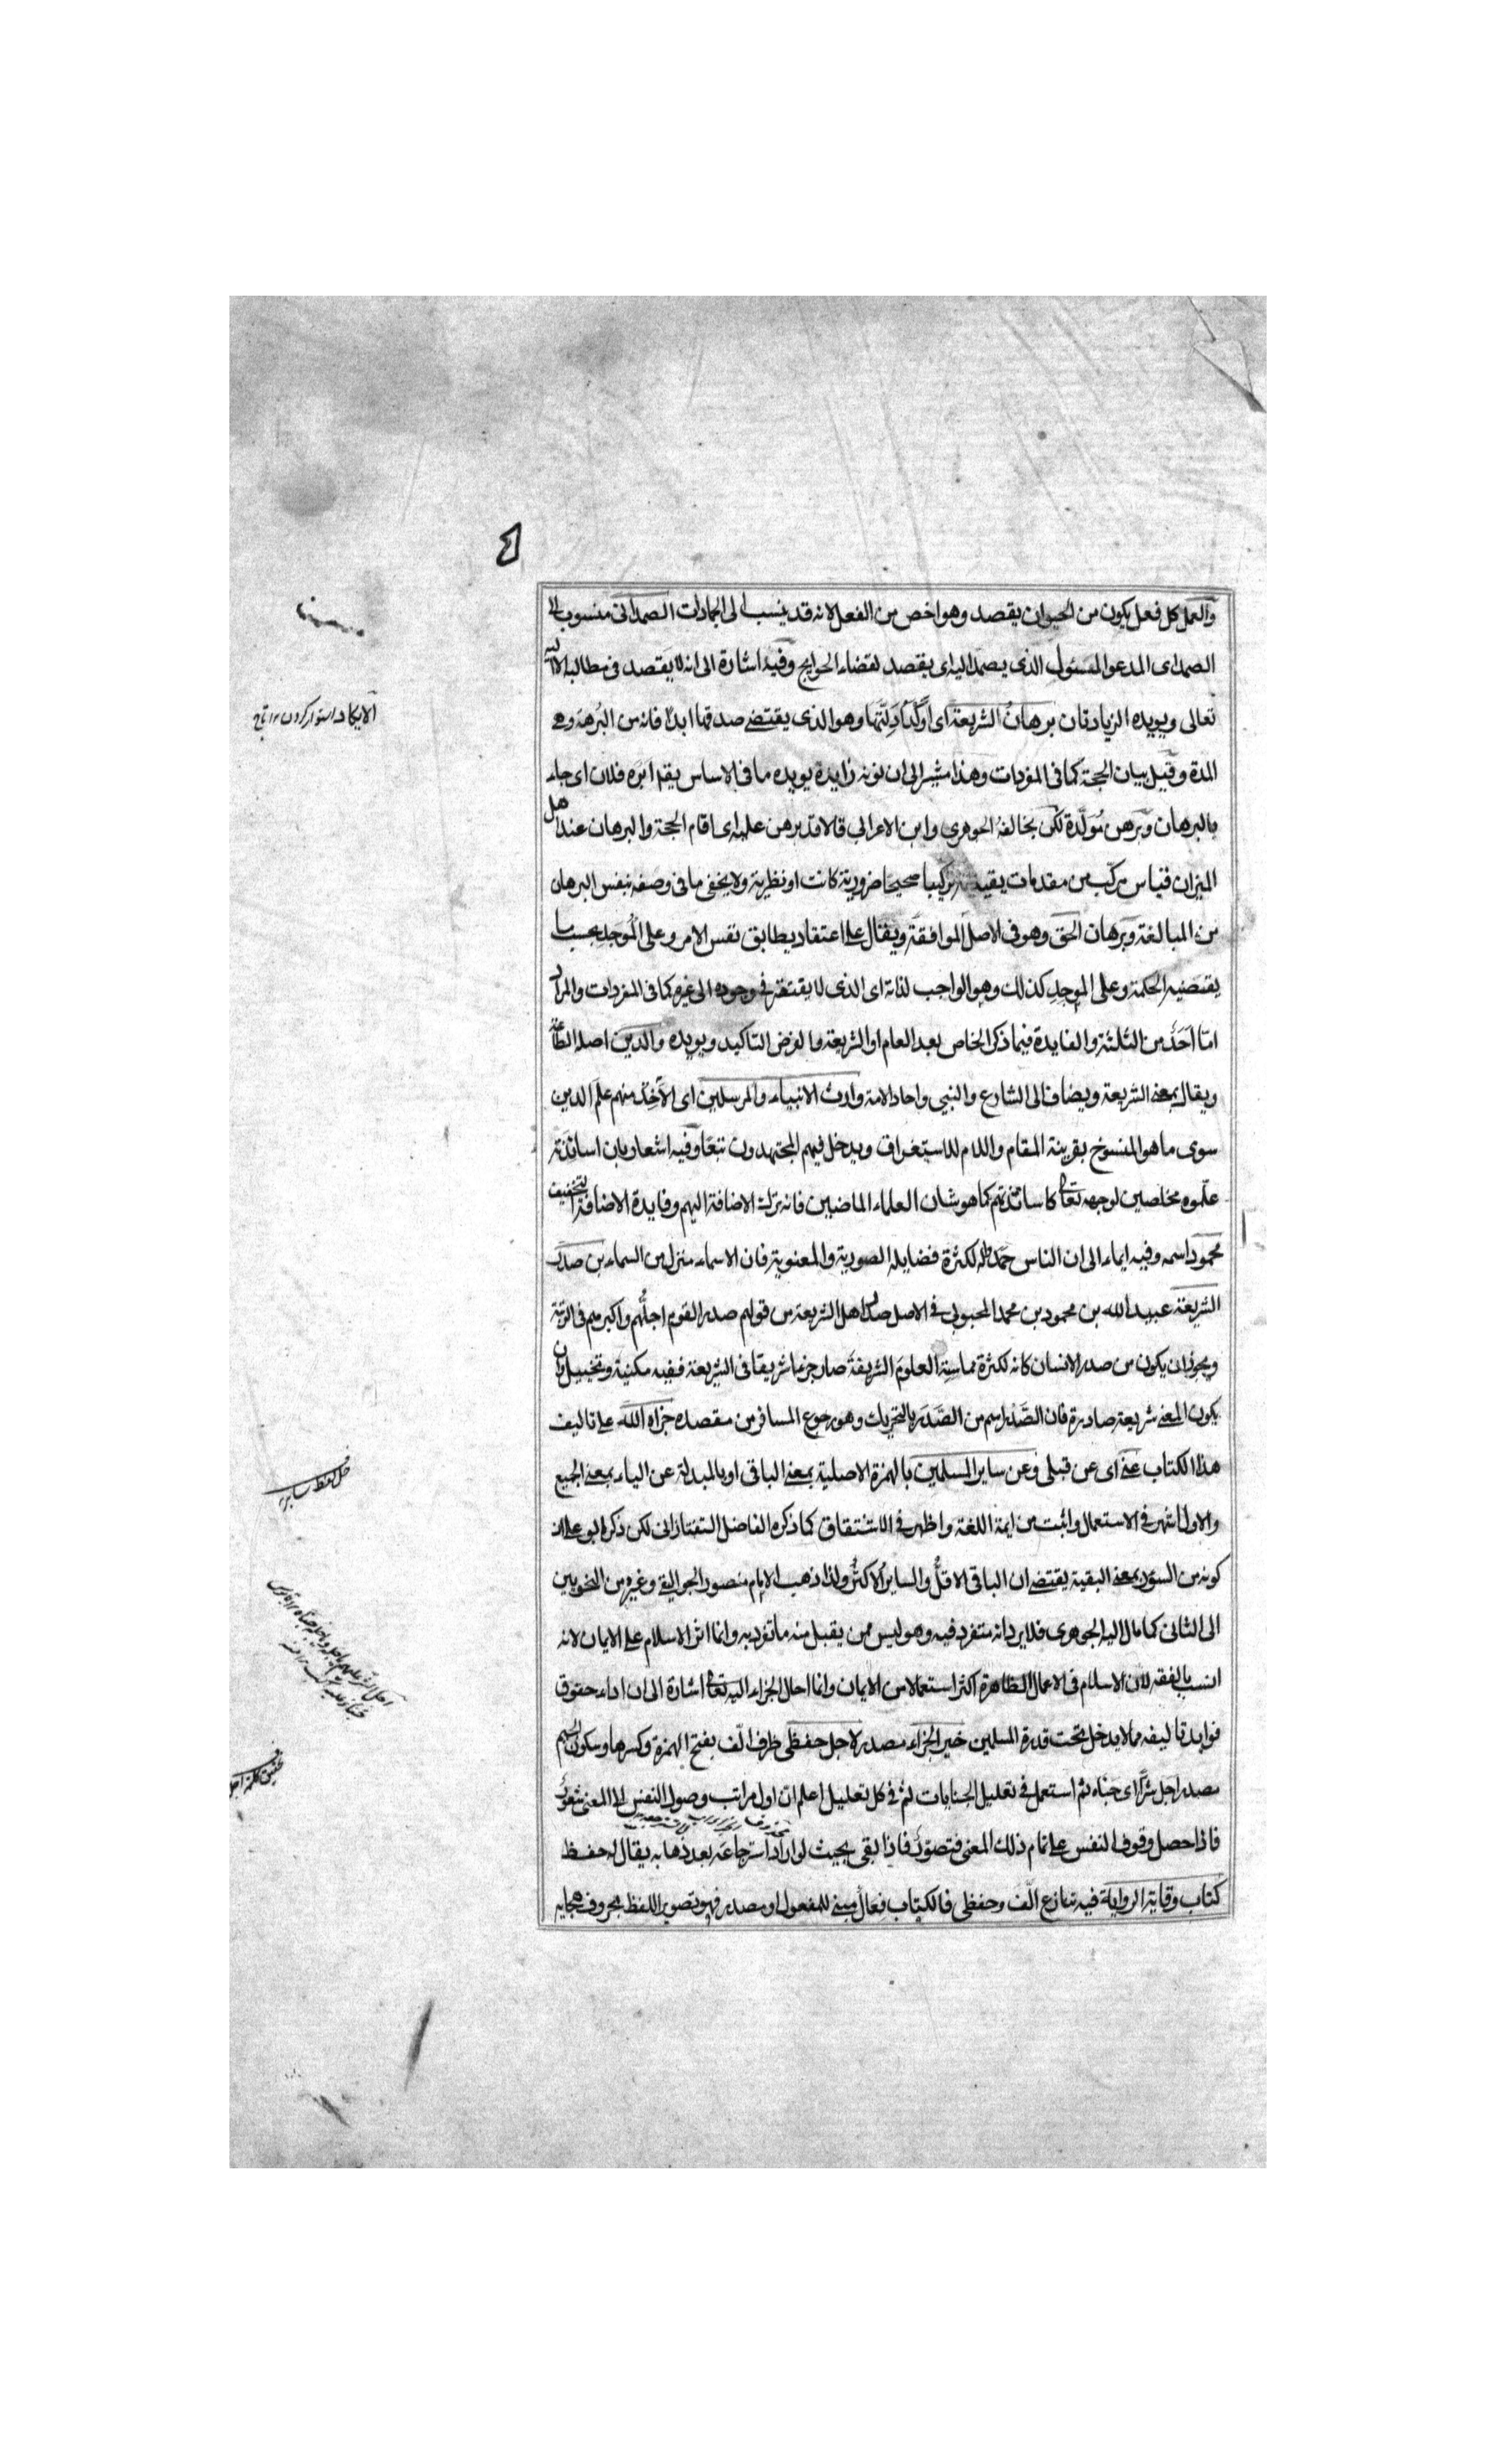 ٤
والعمل كل فعل يكون من الحيوان بقصد وهو اخص من الفعل لانه قد ينسب الى الجمادات الصمدانى منسوب الى
الصمد اى المدعو المسئول الذى يصمد اليه اى يقصد لقضاء الحوايج وفيه اشارة الى انه لا يقصد فى مطالبه الا اليه
تعالى ويويده الزيادتان برهانُ الشريعة اى اوكد ادلتها وهو الذى يقتضى صدقها ابدا فانه من البُرهة وهى
المدة وقيل بيان الحجة كما فى المفردات وهذا مشير الى ان نونه زايدة يويده ما فى الاساس يقال ابره فلان اى جاء
بالبرهان وبرهن مُوَلَّدة لكن يخالفه الجوهرى وابن الاعرابى قالا قد برهن عليه اى اقام الحجة والبرهان عند اهل
الميزان قياس مركّب من مقدمات يقينية تركيبا صحيحا ضرورية كانت او نظرية ولا يخفى ما فى وصفه بنفس البرهان
من المبالغة وبرهان الحق وهو فى الاصل الموافقة ويقال على اعتقاد يطابق نفس الامر وعلى المُوجد بحسب ما
يقتضيه الحكمة وعلى الموجِد كذلك وهو الواجب لذاته اى الذى لا يفتقر فى وجوده الى غيره كما فى المفردات والمراد
امّا احَدٌ من الثلثة والفايدة فيما ذكر الخاص بعد العام او الشريعة والغرض التاكيد ويويده والدين اصله الطاعة
ويقال بمعنى الشريعة ويضاف الى الشارع والنبى واحاد الامة وارث الانبياء والمرسلين اى الآخِذ منهم علم الدين
سوى ما هو المنسوخ بقرينة المقام واللام للاستغراق ويدخل فيهم المجتهدون تبعًا وفيه اشعار بان اساتذته
علّموه مخلصين لوجهه تعالى كاساتذتهم كما هو شان العلماء الماضيين فانه ترك الاضافة اليهم وفايدة الاضافة التخفيف
محمود اسمه وفيه ايماء الى ان الناس حمدوا له لكثرة فضايله الصورية والمعنوية فان الاسماء منزل من السماء بن صدر
الشريعة عبيد الله بن محمود بن محمد المحبوبى فى الاصل صدر اهل الشريعة من قولهم صدر القوم اجلُّهم واكبرهم فى الرتبة
ويجوز ان يكون من صدر الانسان كانه لكثرة ممارسة العلوم الشريفة صار جزءا شريفا فى الشريعة ففيه مكنية وتخييل وان
يكون المعنى شريعة صادرة فان الصَّدْر اسم من الصَّدَر بالتحريك وهو رجوع المسافر من مقصده جزاه الله على تاليف
هذا الكتاب عنى اى عن قبلى وعن ساير المسلمين بالهمزة الاصلية بمعنى الباقى او بالمبدلة عن الياء بمعنى الجميع
والاول اشهر فى الاستعمال واثبت من ايمة اللغة واظهر فى الاشتقاق كما ذكره الفاضل التفتازانى لكن ذكر ابو على ان
كونه من السؤر بمعنى البقية يقتضى ان الباقى الاقلُّ والساير الاكثرُ ولذا ذهب الامام منصور الجواليقى وغيره من النحويين
الى الثانى كما مال اليه الجوهرى فلا يرد انه متفرد فيه وهو ليس ممن يقبل منه ما تفرد به وانما اثر الاسلام على الايمان لانه
انسب بالفقه لان الاسلام فى الاعمال الظاهرة اكثر استعمالا من الايمان وانما احال الجزاء اليه تعالى اشارة الى ان اداء حقوق
فوايد تاليفه مما لا يدخل تحت قدرة المسلمين خير الجزاء مصدر لاجل حفظى ظرف الّف بفتح الهمزة وكسرها وسكون الجيم
مصدر اجل شرًّا اى جناه ثم استعمل فى تعليل الجنايات ثم فى كل تعليل اعلم ان اول مراتب وصول النفس الى المعنى شعور
فاذا حصل وقوف النفس على تمام ذلك المعنى فتصوّر فاذا بقى بحيث لو اراد استرجاعه بعد ذهابه يقال له حفظ
كتاب وقاية الرواية فيه تنازع الّف وحفظى فالكتاب فِعال مبنى للمفعول او مصدر فهو تصوير اللفظ بحروف هجايه
الايكاد استوار كردن ١٢ تاج
حل لفظ ساير
تحقيق كلمة اجل